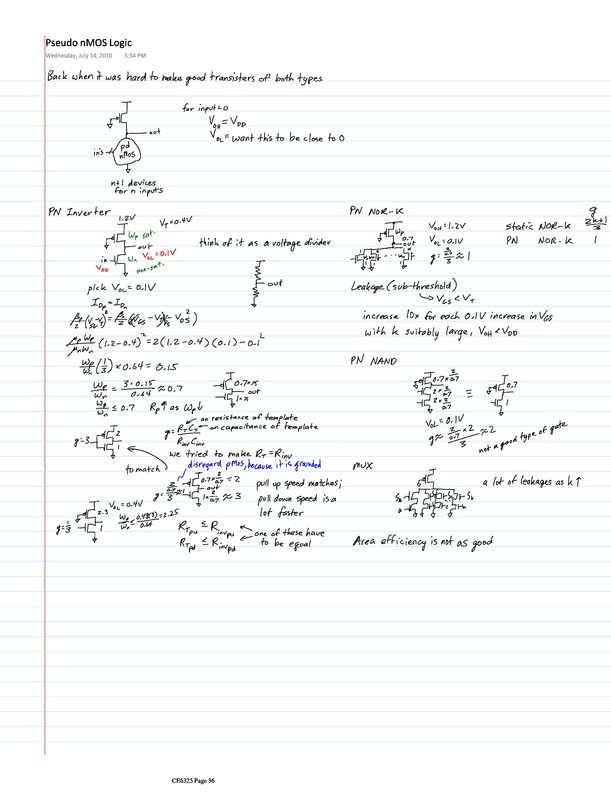 Pseudo nMOS Logic
Wednesday, July 14, 2010 5:54 PM
Back when it was hard to make good transisters of both types
for input=0
V_OH = V_DD
V_OL = want this to be close to 0
out
in's
pd
nMOS
n+1 devices
for n inputs
PN Inverter
1.2V
V_T=0.4V
W_p sat.
out
in
W_n
V_OL=0.1V
V_DD
non-sat.
think of it as a voltage divider
out
pick V_OL = 0.1V
I_Dp = I_Dn
μ_p W_p / μ_n W_n (1.2-0.4)² = 2(1.2-0.4)(0.1) - 0.1²
W_p/W_n (1/3) × 0.64 = 0.15
W_p/W_n = 3·0.15/0.64 ≈ 0.7
W_p/W_n ≤ 0.7 R_p↑ as W_p↓
0.7×x
out
1×x
g=3
2
1
g = R_T C_T / R_inv C_inv
on resistance of template
on capacitance of template
we tried to make R_T = R_inv
to match
disregard pMOS, because it is grounded
0.7×2/0.7=2
out
1×2/0.7≈3
pull up speed matches;
pull down speed is a
lot faster
V_OL=0.4V
2.3
1
g=1/3
W_p/W_n ≤ 0.48(3)/0.64 = 2.25
R_Tpu ≤ R_invpu
R_Tpd ≤ R_invpd
one of these have
to be equal
PN NOR-K
W_p
0.7
out
V_OH=1.2V
V_OL=0.1V
g
static NOR-K 2k+1/3
PN NOR-K 1
Leakage (sub-threshold)
V_GS < V_T
increase 10x for each 0.1V increase in V_GS
with k suitably large, V_OH < V_DD
PN NAND
0.7×2/0.7
2×2/0.7
2×2/0.7
≡
0.7
1
V_OL=0.1V
g≈ 2/0.7 × 2 / 3 ≈ 2
not a good type of gate
MUX
a lot of leakages as k↑
Area efficiency is not as good
CE6325 Page 36